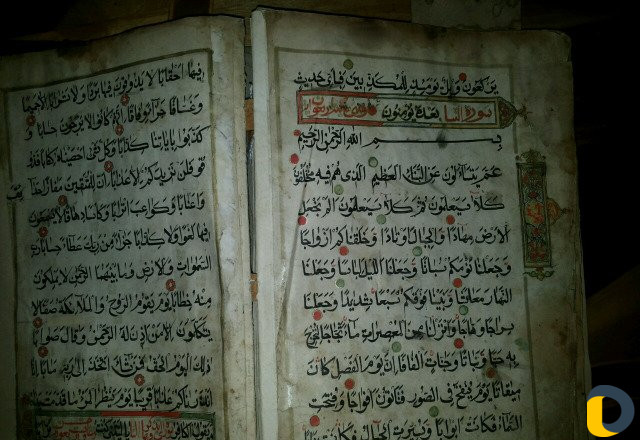 يركعون ويل يومئذ للمكذبين فباي حديث
سورة النبا بعده يومنون
بسم الله الرحمن الرحيم
عم يتساءلون عن النبا العظيم الذي هم فيه مختلفون
كلا سيعلمون ثم كلا سيعلمون الم نجعل
الارض مهادا والجبال اوتادا وخلقناكم ازواجا
وجعلنا نومكم سباتا وجعلنا الليل لباسا وجعلنا
النهار معاشا وبنينا فوقكم سبعا شدادا وجعلنا
سراجا وهاجا وانزلنا من المعصرات ماء ثجاجا لنخرج
به حبا ونباتا وجنات الفافا ان يوم الفصل كان
ميقاتا يوم ينفخ في الصور فتاتون افواجا وفتحت
السماء فكانت ابوابا وسيرت الجبال فكانت
فيها احقابا لا يذوقون فيها بردا ولا شرابا الا حميما
وغساقا جزاء وفاقا انهم كانوا لا يرجون حسابا و
كذبوا باياتنا كذابا وكل شيء احصيناه كتابا فذو
قوا فلن نزيدكم الا عذابا ان للمتقين مفازا حدائق
واعنابا وكواعب اترابا وكاسا دهاقا لا يسمعون
فيها لغوا ولا كذابا جزاء من ربك عطاء حسابا رب
السموات والارض وما بينهما الرحمن لا يملكون
منه خطابا يوم يقوم الروح والملائكة صفا لا
يتكلمون الا من اذن له الرحمن وقال صوابا
ذلك اليوم الحق فمن شاء اتخذ الى ربه مابا انا
انذرناكم عذابا قريبا يوم ينظر المرء ما قدمت